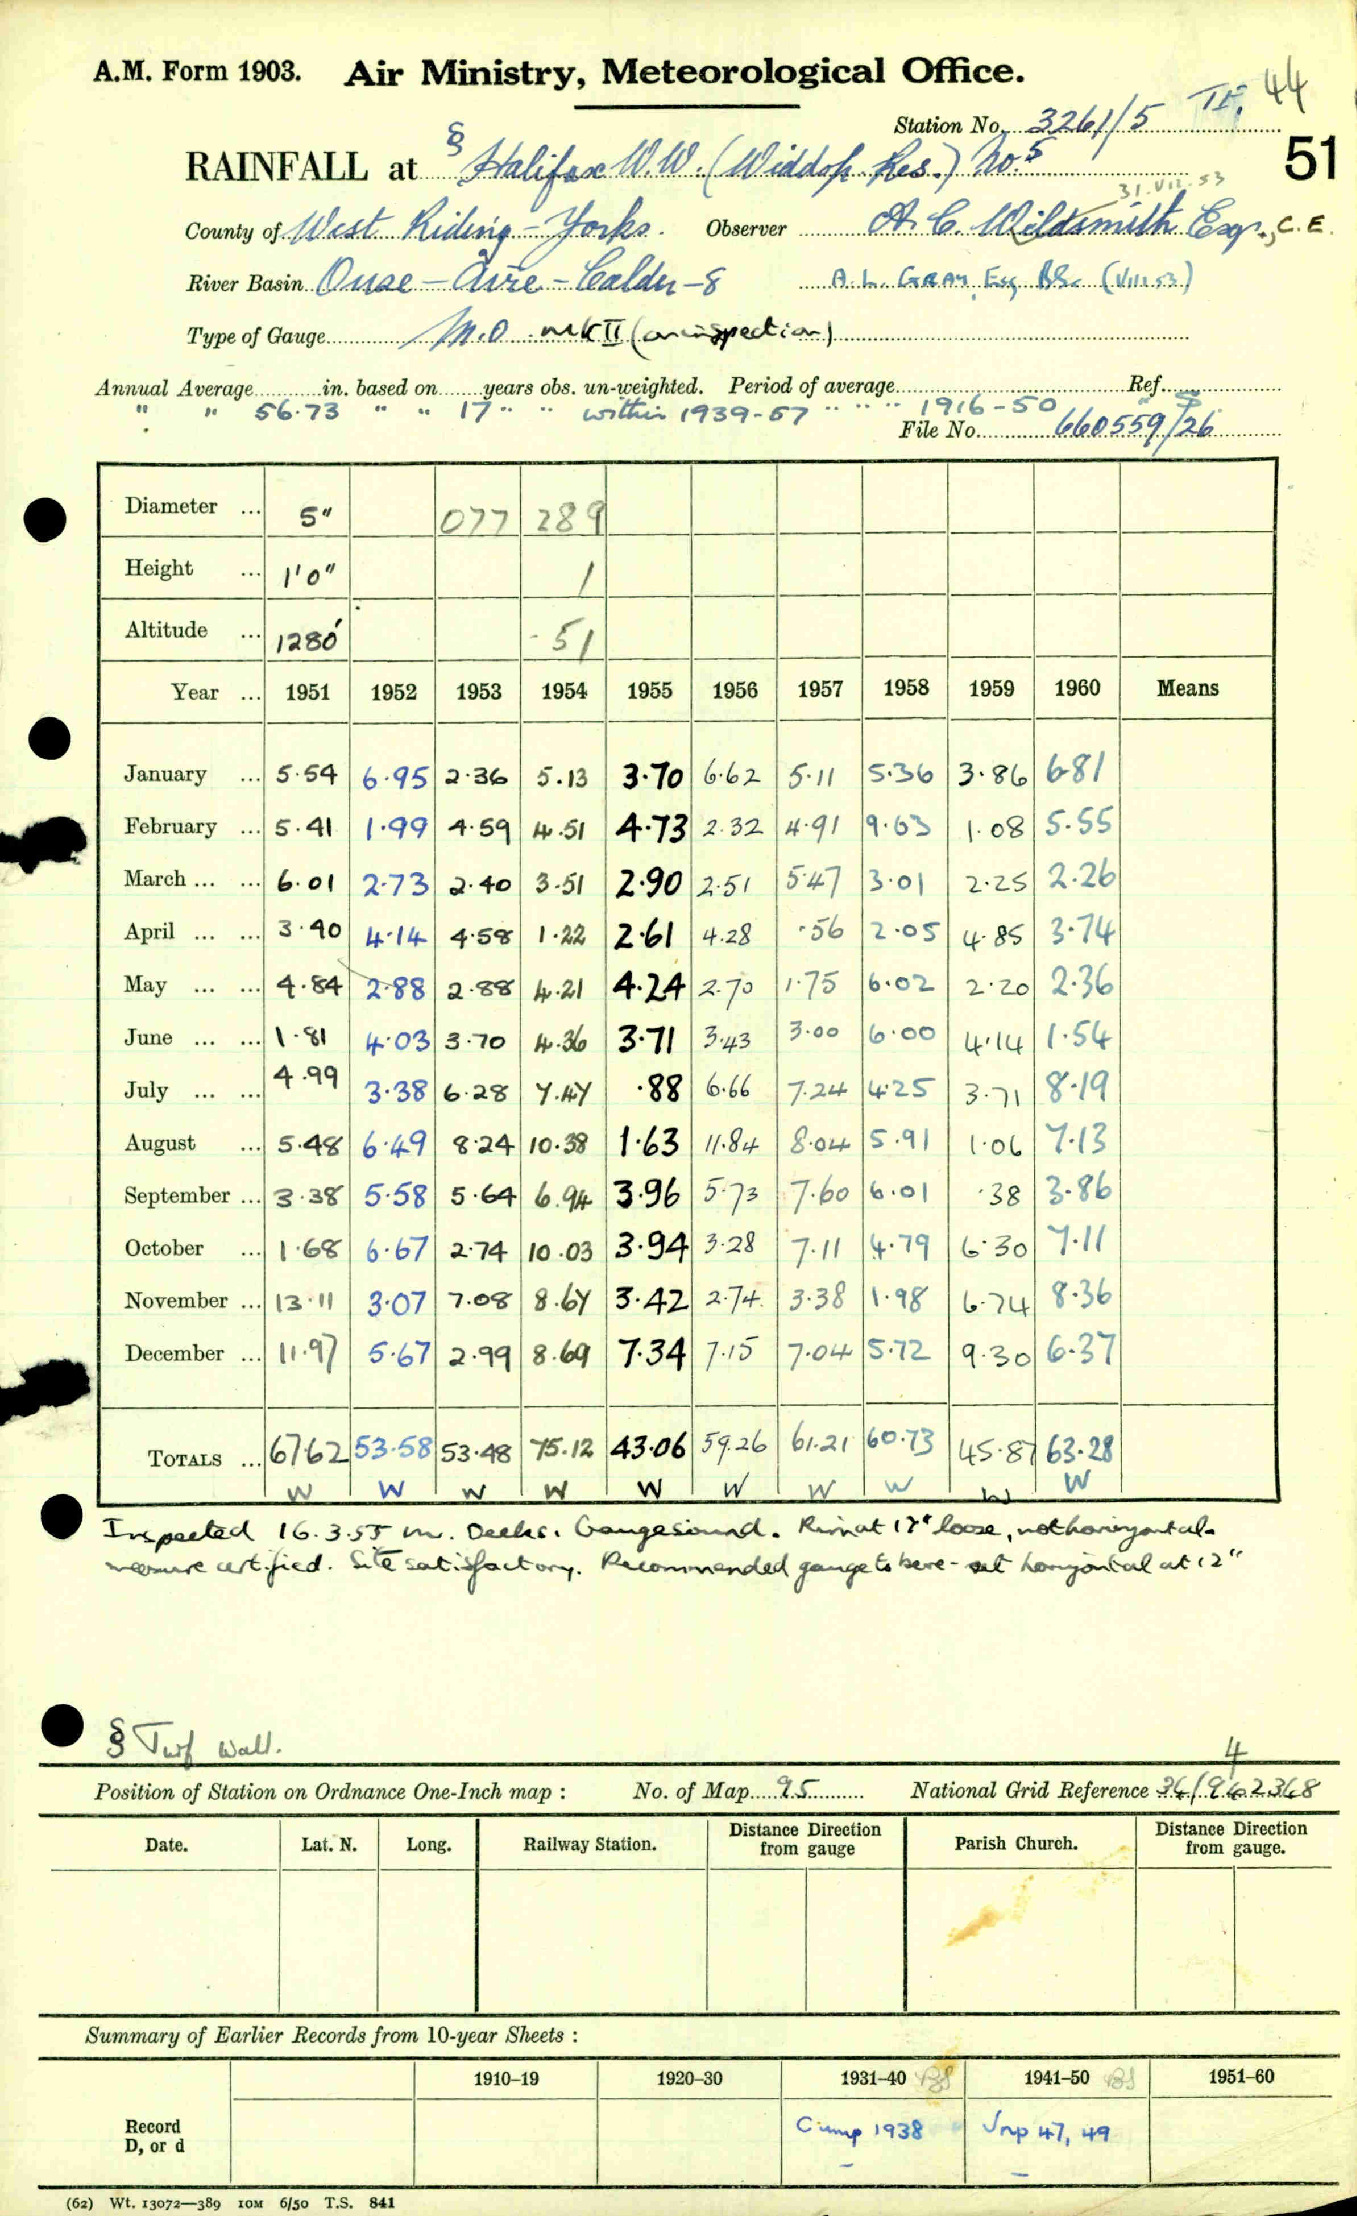 A.M. Form 1903. Air Ministry, Meteorological Office.
44
Station No. 3261/5
51
RAINFALL at § Halifax W.W. (Widdop Res.) No. 5
31.VII.53
County of West Riding - Yorks. Observer A. C. Wildsmith Esq., C.E.
River Basin Ouse - Aire - Calder - 8 A. L. GRAY, Esq, BSc (VIII 53)
Type of Gauge M.O MK II (on inspection)
Annual Average in. based on years obs. un-weighted. Period of average Ref.
" " 56.73 " " 17 " " within 1939-57 " " " 1916-50 S
File No. 660559/26
Diameter ... 5" 077 289
Height ... 1'0" 1
Altitude ... 1280' 51
Year ... 1951 1952 1953 1954 1955 1956 1957 1958 1959 1960 Means
January ... 5.54 6.95 2.36 5.13 3.70 6.62 5.11 5.36 3.86 6.81
February ... 5.41 1.99 4.59 4.51 4.73 2.32 4.91 9.63 1.08 5.55
March ... ... 6.01 2.73 2.40 3.51 2.90 2.51 5.47 3.01 2.25 2.26
April ... ... 3.40 4.14 4.58 1.22 2.61 4.28 .56 2.05 4.85 3.74
May ... ... 4.84 2.88 2.88 4.21 4.24 2.70 1.75 6.02 2.20 2.36
June ... ... 1.81 4.03 3.70 4.36 3.71 3.43 3.00 6.00 4.14 1.54
July ... ... 4.99 3.38 6.28 7.47 .88 6.66 7.24 4.25 3.71 8.19
August ... 5.48 6.49 8.24 10.38 1.63 11.84 8.04 5.91 1.06 7.13
September ... 3.38 5.58 5.64 6.94 3.96 5.73 7.60 6.01 .38 3.86
October ... 1.68 6.67 2.74 10.03 3.94 3.28 7.11 4.79 6.30 7.11
November ... 13.11 3.07 7.08 8.67 3.42 2.74 3.38 1.98 6.74 8.36
December ... 11.97 5.67 2.99 8.69 7.34 7.15 7.04 5.72 9.30 6.37
TOTALS ... 67.62 53.58 53.48 75.12 43.06 59.26 61.21 60.73 45.87 63.28
W W W W W W W W W W
Inspected 16.3.55 Gauge sound. Rim at 17" loose, not horizontal.
measure certified. Site satisfactory. Recommended gauge to be re-set horizontal at 12"
§ Turf Wall.
4
Position of Station on Ordnance One-Inch map : No. of Map 95 National Grid Reference 34/942368
Date. Lat. N. Long. Railway Station. Distance Direction from gauge Parish Church. Distance Direction from gauge.
Summary of Earlier Records from 10-year Sheets :
1910–19 1920–30 1931–40 1941–50 1951–60
Record D, or d 1938 47, 49
(62) Wt. 13072—389 10M 6/50 T.S. 841